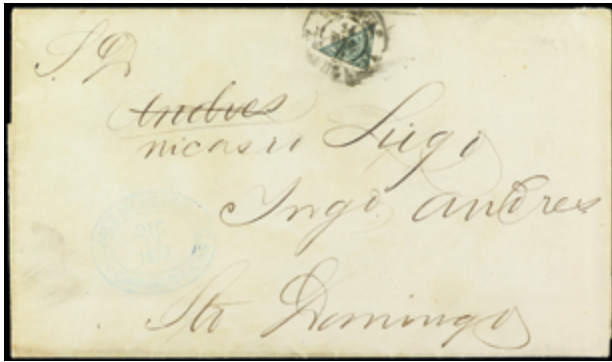 S. D
Andres
nicasio Lugo
Ingo Andres
Sto Domingo
DIC